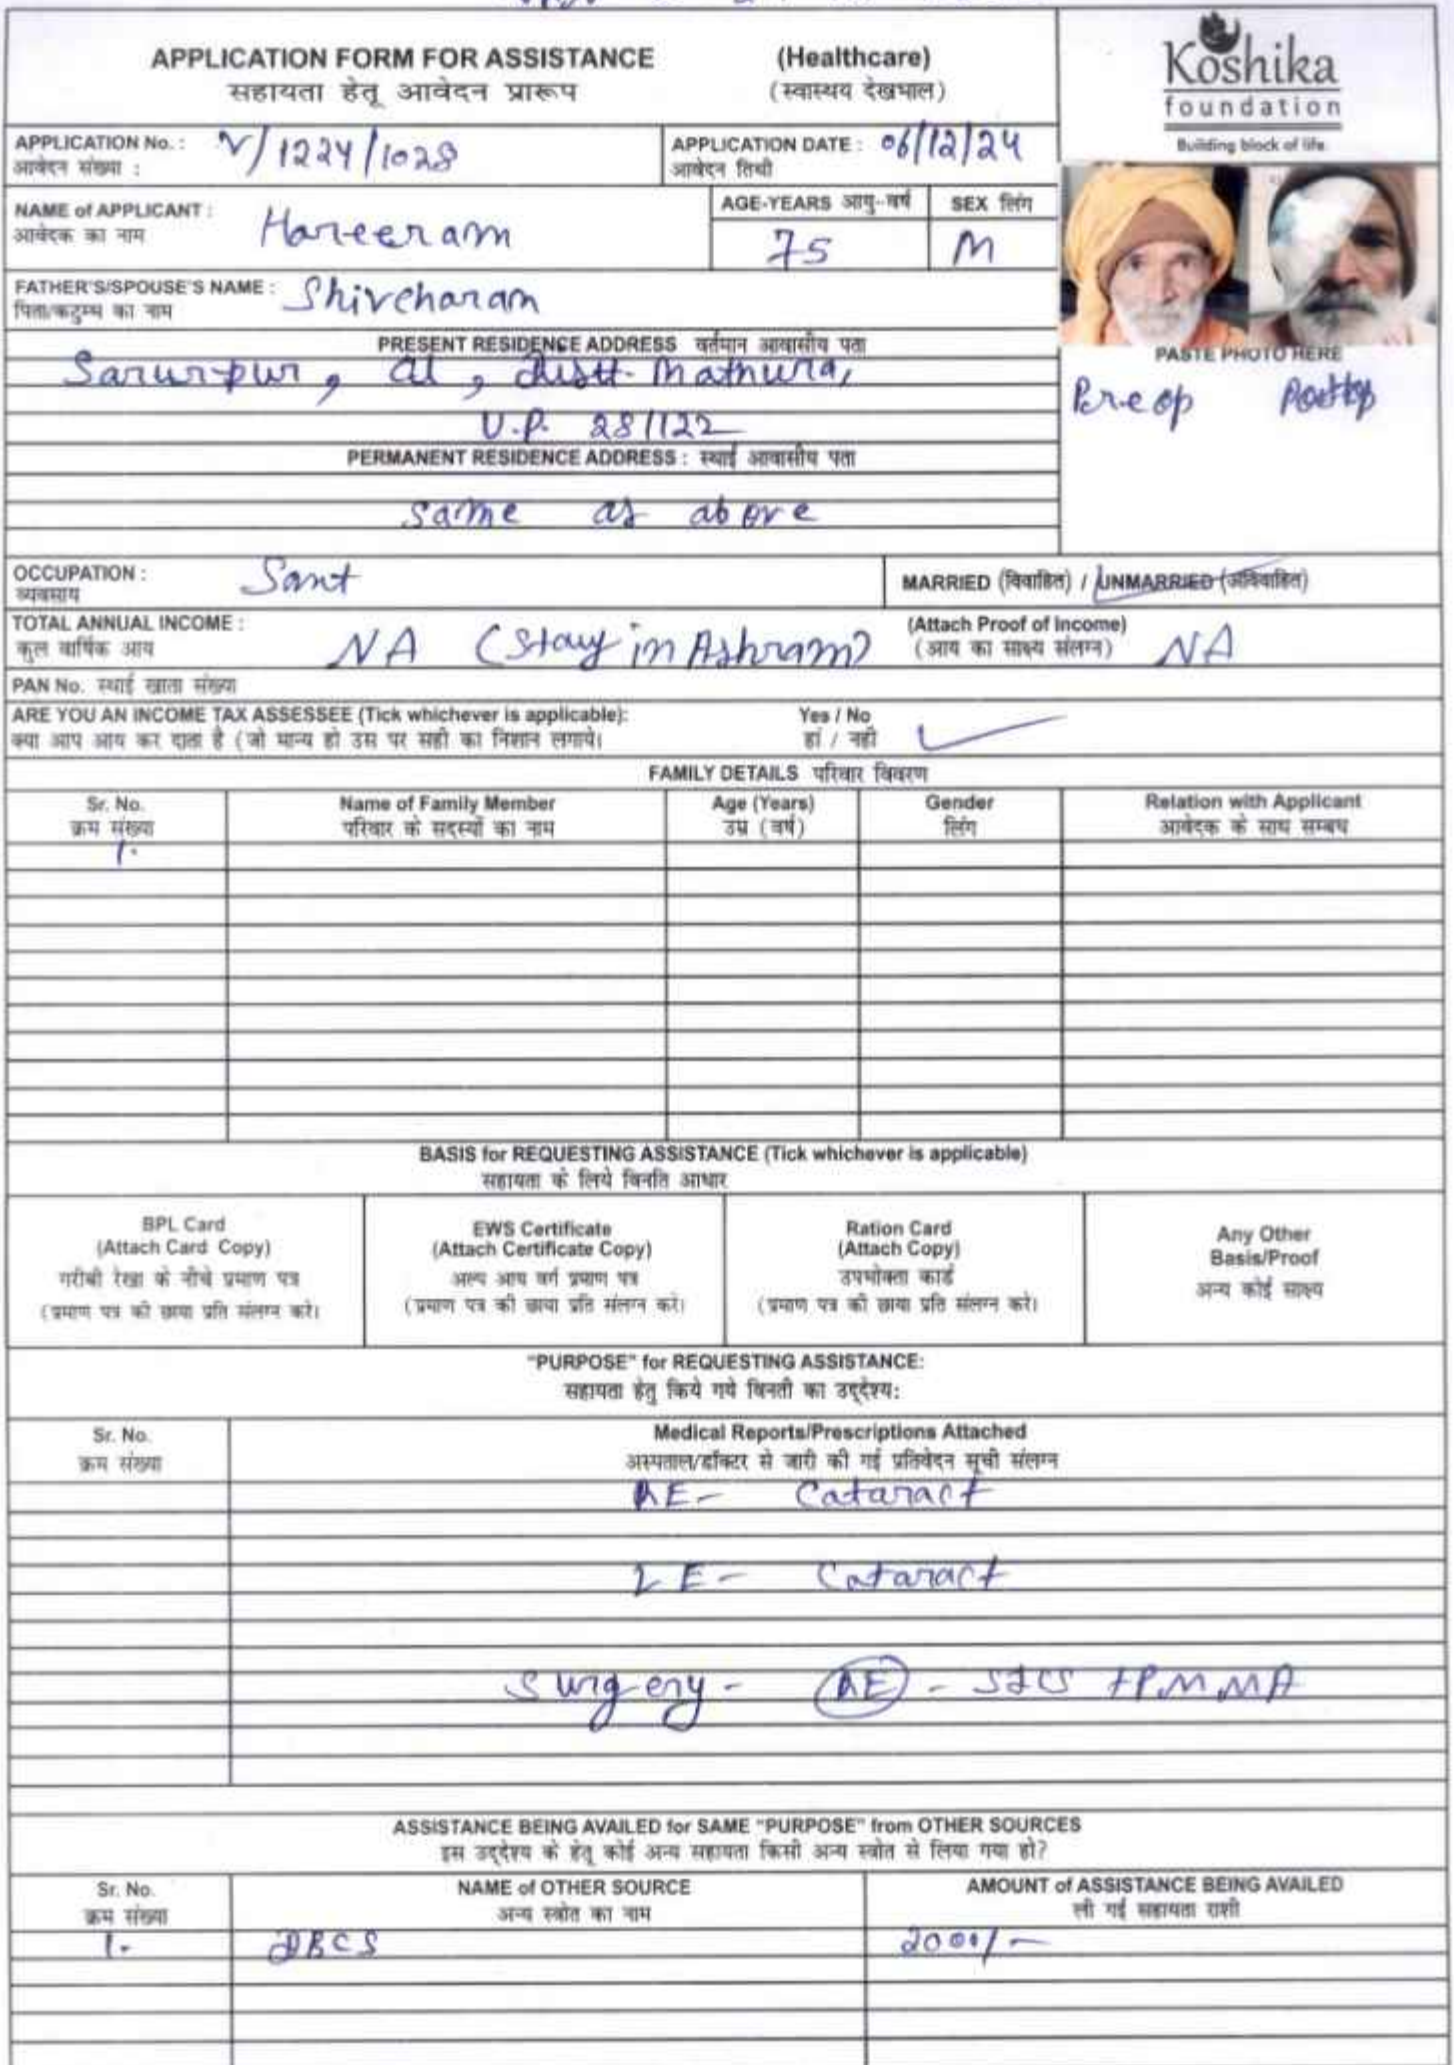 APPLICATION FORM FOR ASSISTANCE (Healthcare)
सहायता हेतू आवेदन प्रारूप (स्वास्थय देखभाल)
Koshika
foundation
Building block of life
APPLICATION No. : V/1224/1028 APPLICATION DATE : 06/12/24
आवेदन संख्या : आवेदन तिथी
NAME of APPLICANT : Hareeram AGE-YEARS आयु-वर्ष SEX लिंग
आवेदक का नाम 75 M
FATHER'S/SPOUSE'S NAME : Shivcharan
पिता/कटुम्ब का नाम
PRESENT RESIDENCE ADDRESS वर्तमान आवासीय पता
Sarurpur, at, distt- Mathura,
U.P. 281122
PASTE PHOTO HERE
Preop Postop
PERMANENT RESIDENCE ADDRESS : स्थाई आवासीय पता
same as above
OCCUPATION : Sant MARRIED (विवाहित) / UNMARRIED (अविवाहित)
व्यवसाय
TOTAL ANNUAL INCOME : NA (Stay in Ashram) (Attach Proof of Income) NA
कुल वार्षिक आय (आय का साक्ष्य संलग्न)
PAN No. स्थाई खाता संख्या
ARE YOU AN INCOME TAX ASSESSEE (Tick whichever is applicable): Yes / No
क्या आप आय कर दाता है (जो मान्य हो उस पर सही का निशान लगाये। हां / नही
FAMILY DETAILS परिवार विवरण
Sr. No. Name of Family Member Age (Years) Gender Relation with Applicant
क्रम संख्या परिवार के सदस्यों का नाम उम्र (वर्ष) लिंग आवेदक के साथ सम्बध
1.
BASIS for REQUESTING ASSISTANCE (Tick whichever is applicable)
सहायता के लिये विनति आधार
BPL Card
(Attach Card Copy)
गरीबी रेखा के नीचे प्रमाण पत्र
(प्रमाण पत्र की छाया प्रति संलग्न करे।
EWS Certificate
(Attach Certificate Copy)
अल्प आय वर्ग प्रमाण पत्र
(प्रमाण पत्र की छाया प्रति संलग्न करे।
Ration Card
(Attach Copy)
उपभोक्ता कार्ड
(प्रमाण पत्र की छाया प्रति संलग्न करे।
Any Other
Basis/Proof
अन्य कोई साक्ष्य
"PURPOSE" for REQUESTING ASSISTANCE:
सहायता हेतु किये गये विनती का उद्देश्य:
Sr. No. Medical Reports/Prescriptions Attached
क्रम संख्या अस्पताल/डॉक्टर से जारी की गई प्रतिवेदन सूची संलग्न
RE- Cataract
LE- Cataract
Surgery - RE - SICS +PMMA
ASSISTANCE BEING AVAILED for SAME "PURPOSE" from OTHER SOURCES
इस उद्देश्य के हेतू कोई अन्य सहायता किसी अन्य स्त्रोत से लिया गया हो?
Sr. No. NAME of OTHER SOURCE AMOUNT of ASSISTANCE BEING AVAILED
क्रम संख्या अन्य स्त्रोत का नाम ली गई सहायता राशी
1- DBCS 2000/-